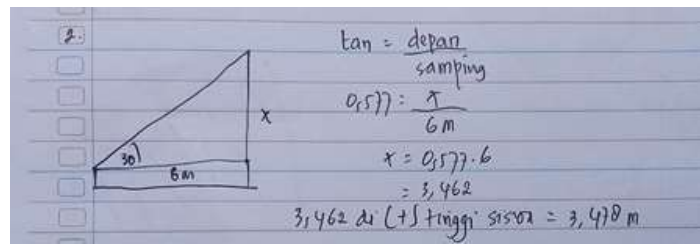 2.
tan = depan
samping
0,577 = x
6m
x
30
6m
x = 0,577 . 6
= 3,462
3,462 di (+) tinggi siswa = 3,478 m